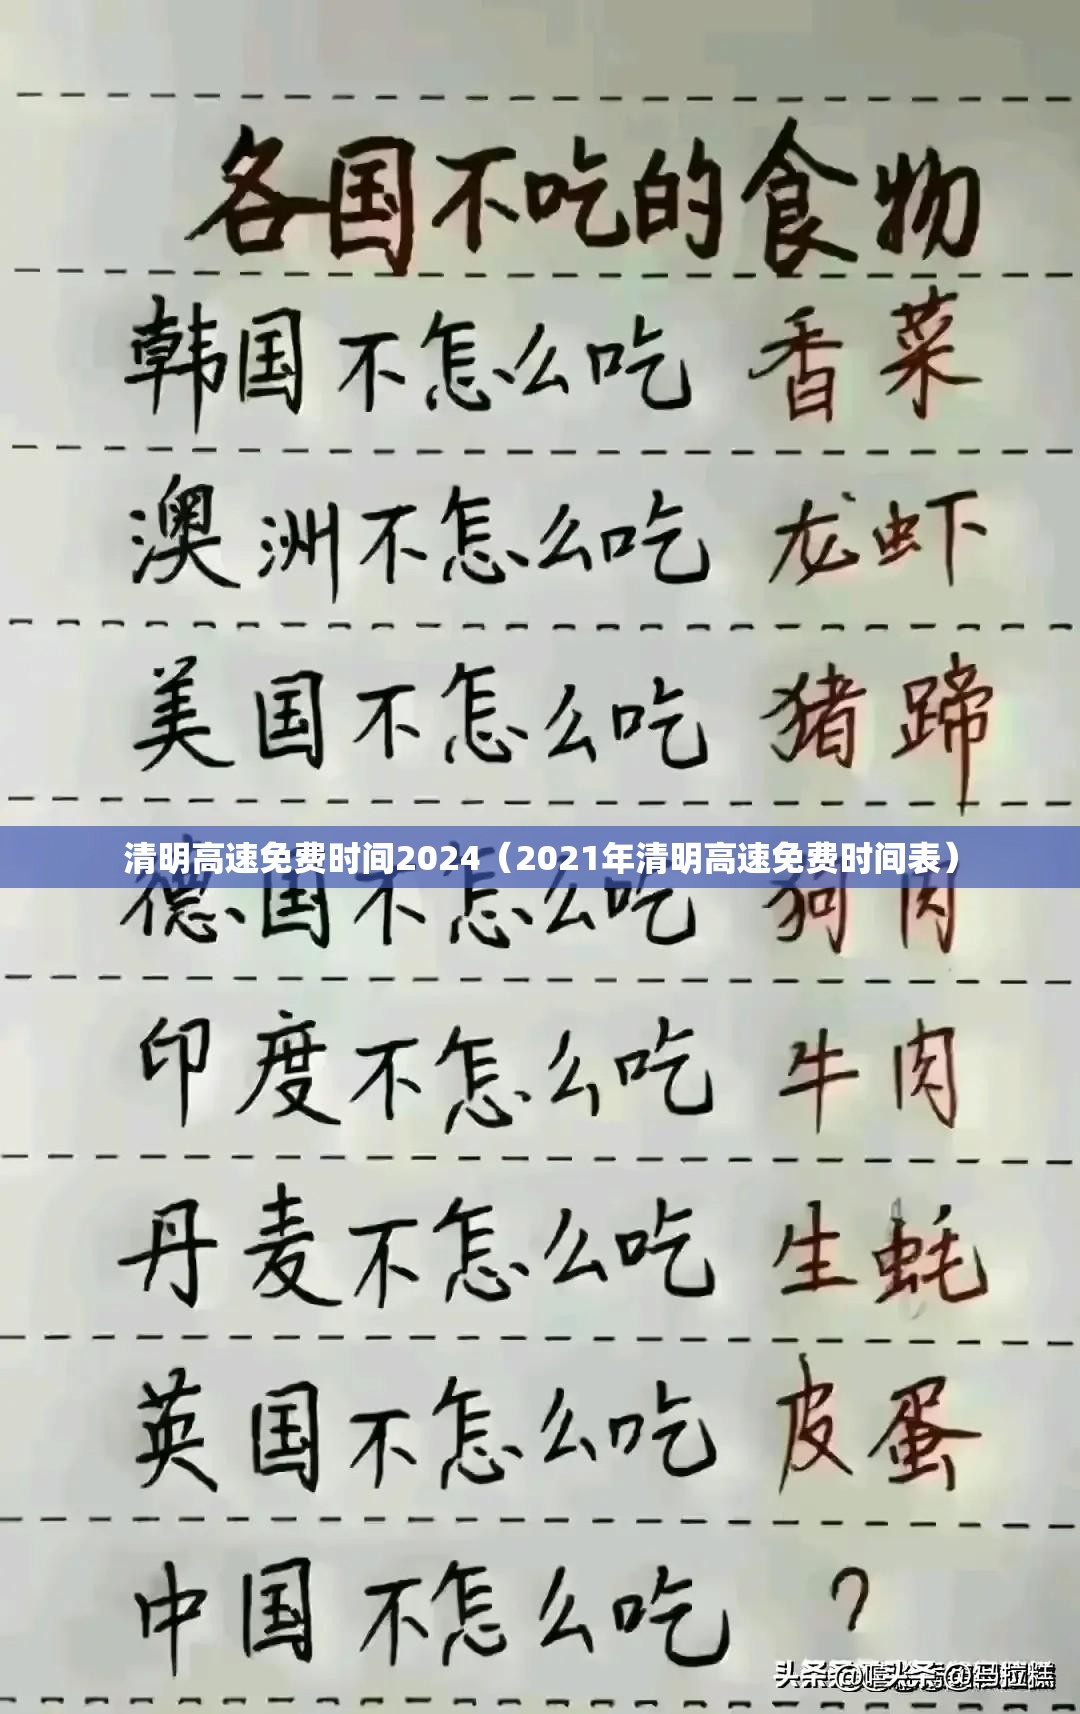 各国不吃的食物
韩国不怎么吃 香菜
澳洲不怎么吃 龙虾
美国不怎么吃 猪蹄
清明高速免费时间2024（2021年清明高速免费时间表）
德国不怎么吃 狗肉
印度不怎么吃 牛肉
丹麦不怎么吃 生蚝
英国不怎么吃 皮蛋
中国不怎么吃 ?
头条